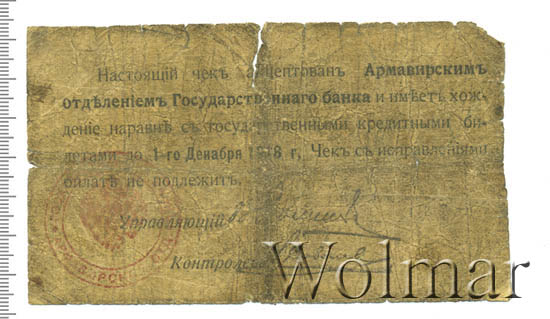 Настоящій чекъ акцептованъ Армавирскимъ
отдѣленіемъ Государственнаго банка и имѣетъ хож-
деніе наравнѣ съ государственными кредитными би-
летами до 1-го Декабря 1918 г. Чекъ съ исправленіями
оплатѣ не подлежитъ.
Управляющій
Контролеръ
Wolmar